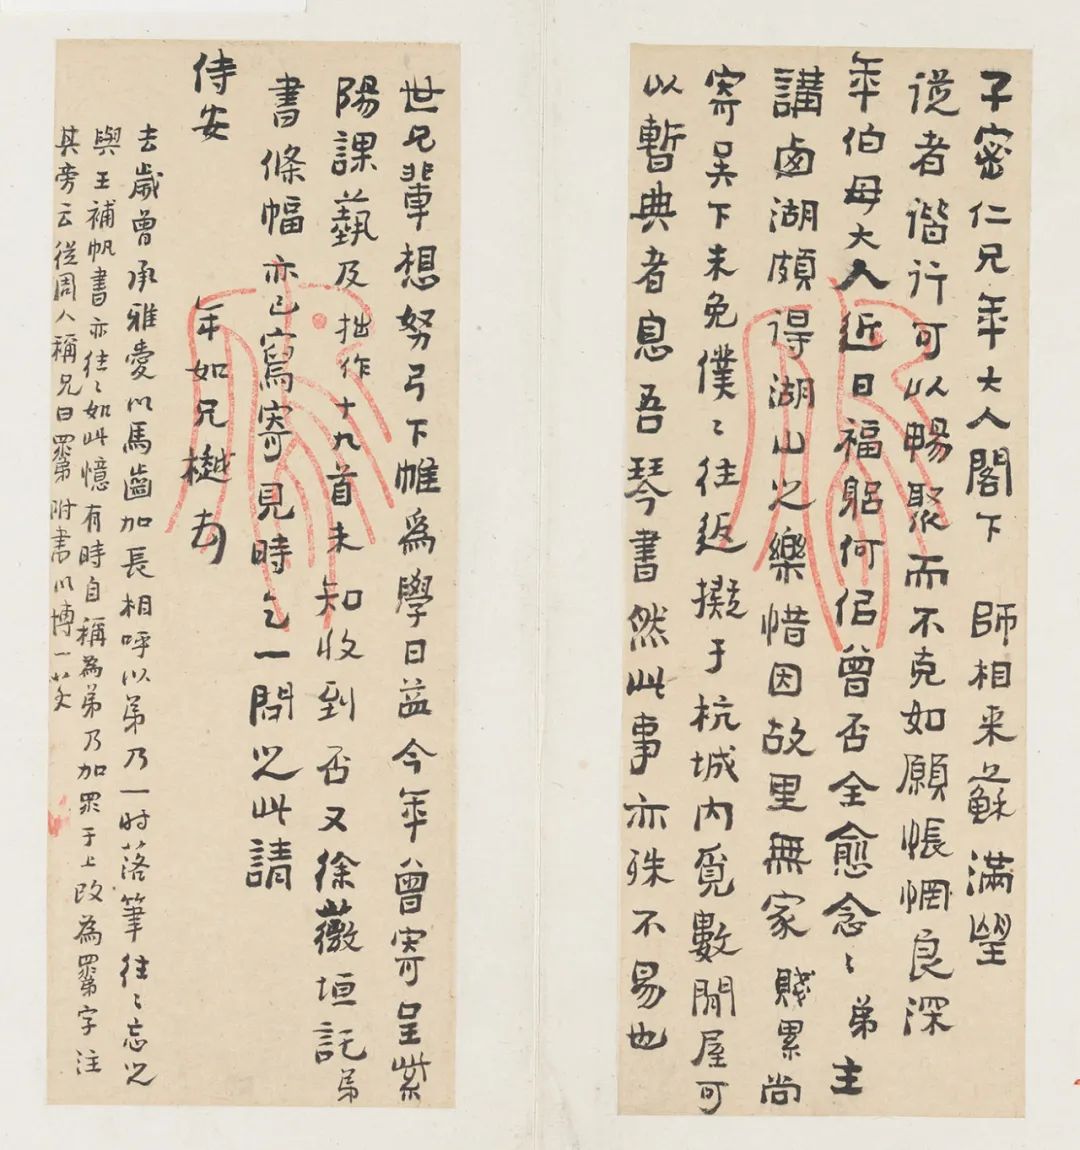 子密仁兄年大人閣下　師相来蘇滿望
從者谐行可以暢聚而不克如願悵惘良深
年伯母大人近日福躬何佀曾否全愈念〻弟主
講卤湖頗得湖山之樂惜因故里無家賤累尚
寄吴下未免僕〻往返擬于杭城内覓數間屋可
以暫典者息吾琴書然此事亦殊不易也
世兄輩想努弓下帷為學日益今年曾寄呈紫
陽課藝及拙作十九首未知收到否又徐薇垣託弟
書條幅亦已寫寄見時乞一問之此請
侍安
年如兄樾頓
去歲曾承雅愛以馬齒加長相呼以弟乃一时落筆往〻忘之
與王補帆書亦往〻如此憶有時自稱為弟乃加眾于上改為字注
其旁云從周人稱兄曰附書以博一笑